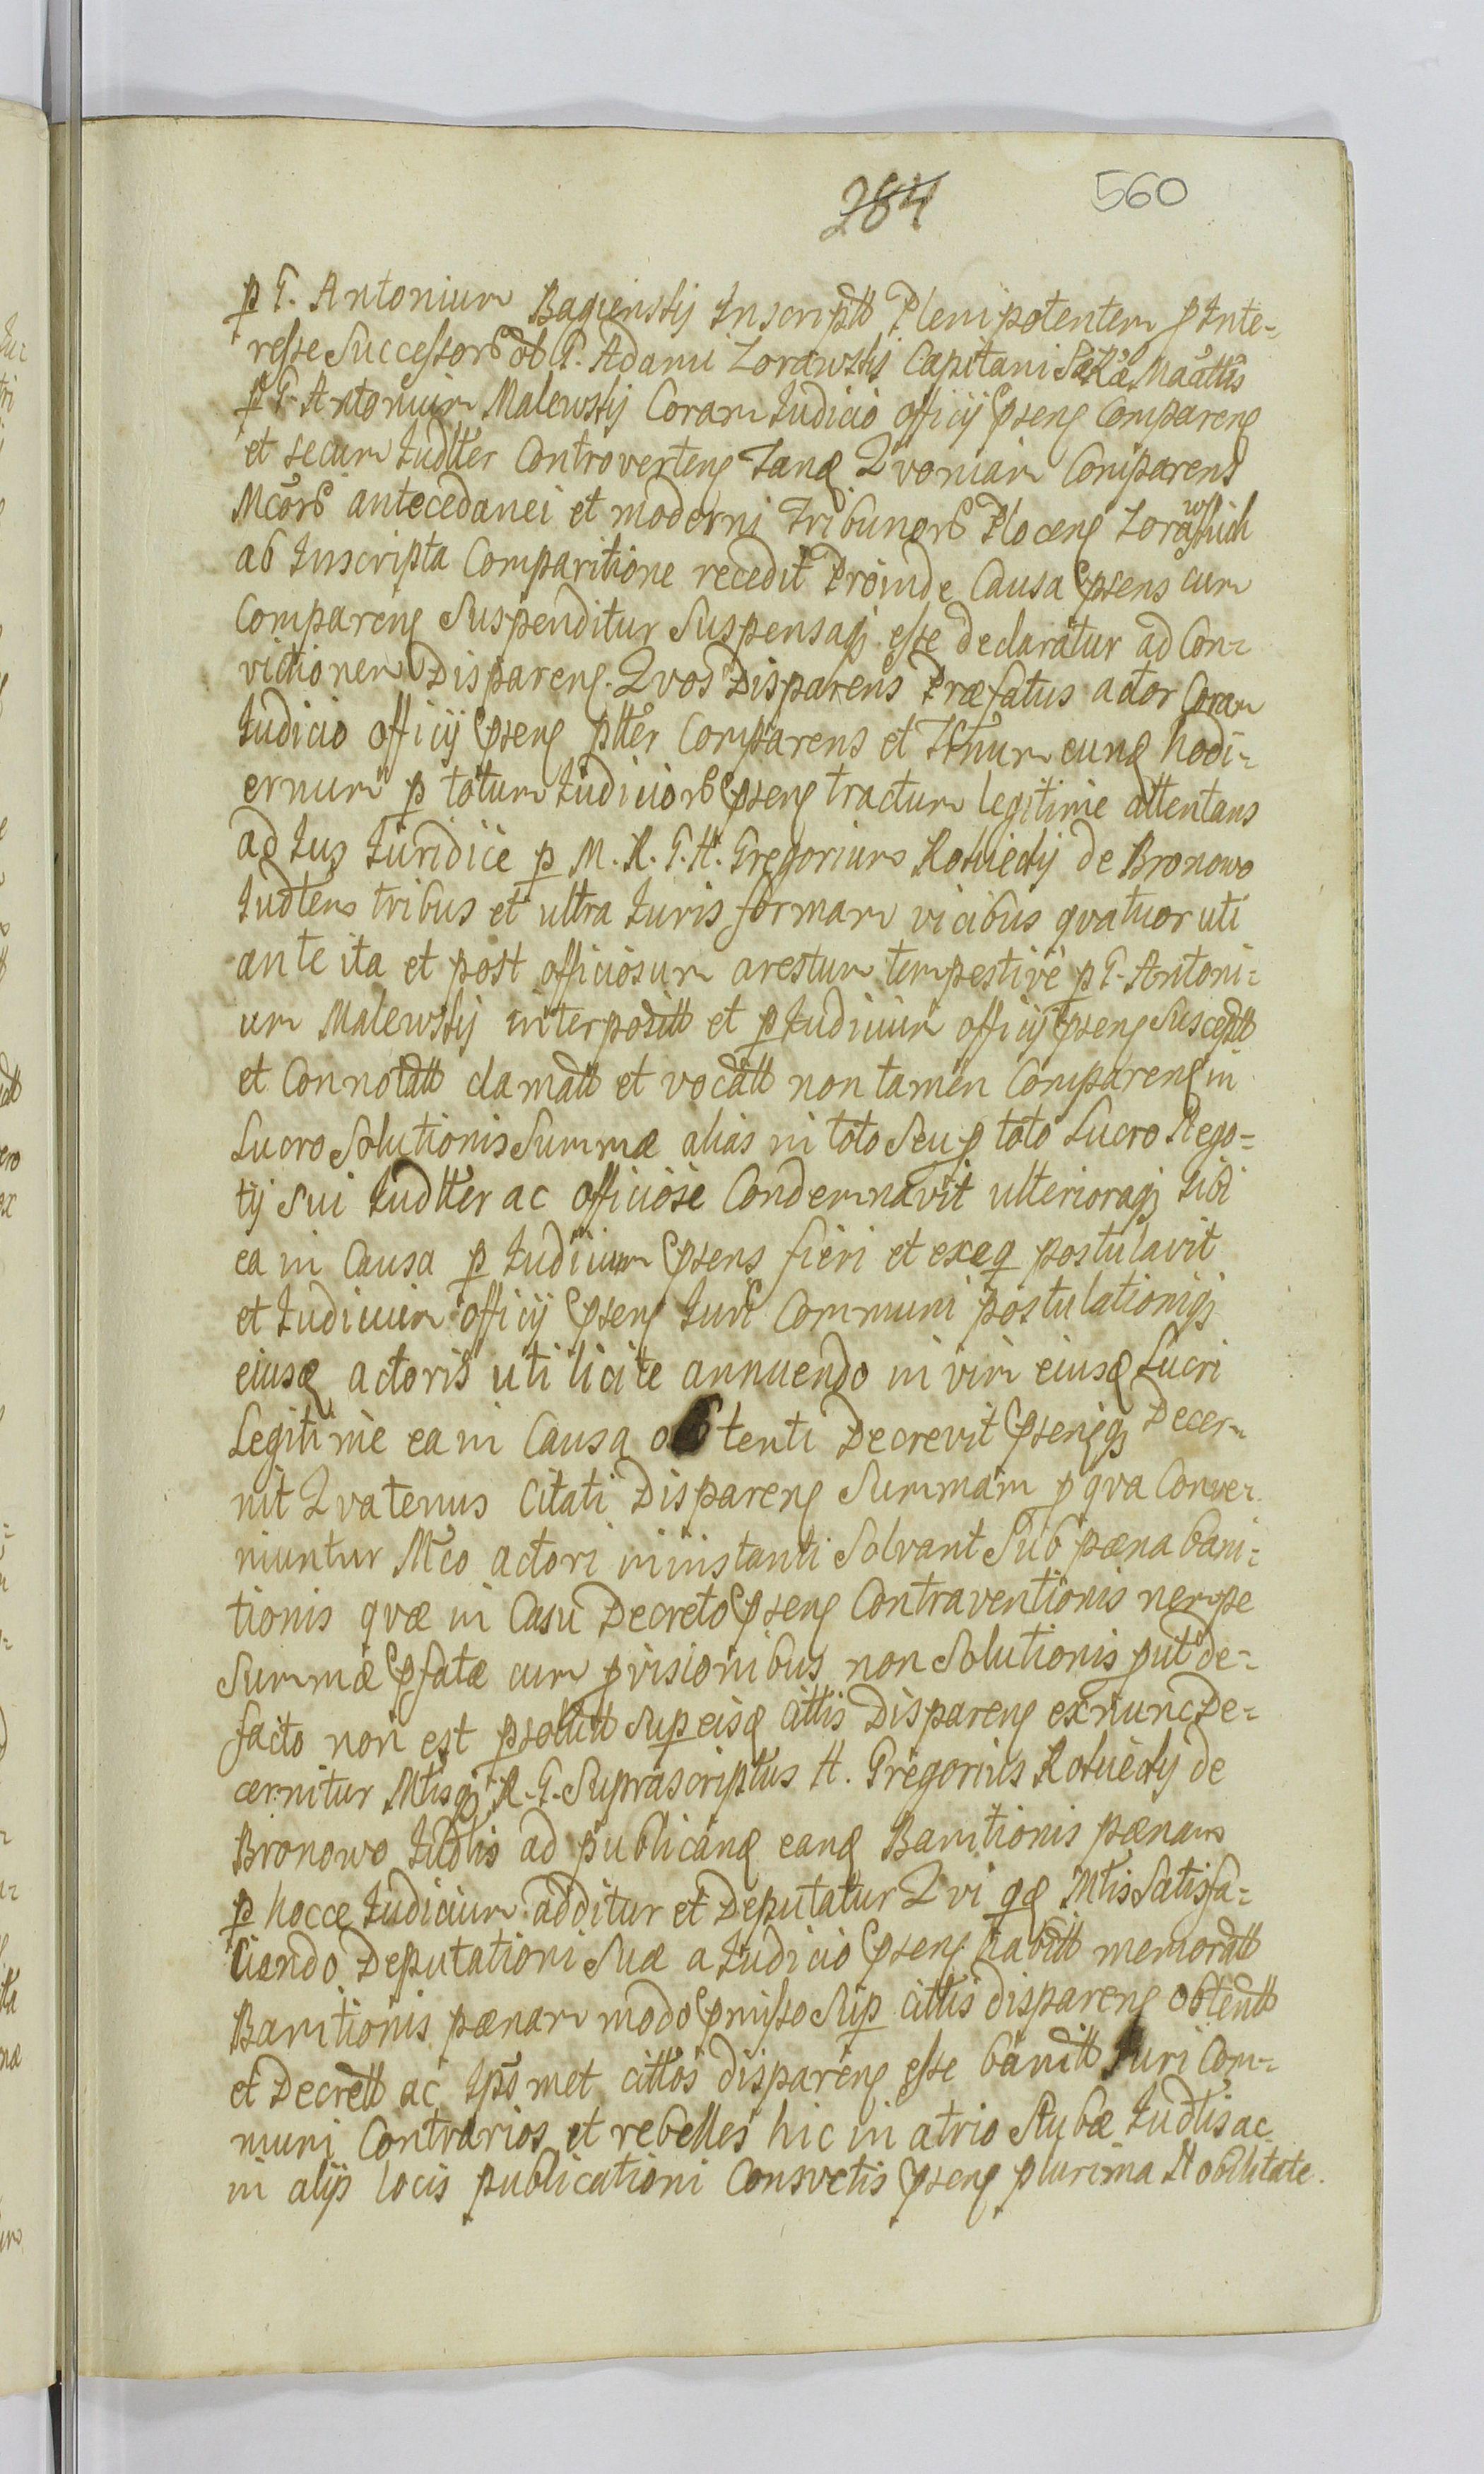 284 560
p G. Antonium Bagienskij Inscriptt Plenipotentem p Inte-
resse Successorb ol G. Adami Zorawskij Capitani SaRa Maattis
p G. Antonium Malewskij Coram Iudicio officij psens Comparens
et secum Iudtter Controvertens Tand Qvoniam Comparens
Mcorb antecedanei et moderni Tribunorb Plocens Zorawskich
ab Inscripta Comparitione recedit Proinde Causa psens cum
Comparens Suspenditur Suspensaq esse declaratur ad Con-
victionem Disparens. Qvos Disparens Præfatus actor Coram
Iudicio officij psens ptter Comparens et Ttnum eund hodi-
ernum p totum Iudiciorb psens tractum legitime attentans
ad Ius Iuridice p M. R. G. H. Gregorium Kotwiedij de Bronowo
Iudtem tribus et ultra Iuris formam vicibus qvatuor uti
ante ita et post officiosum arestum tempestive p G. Antoni-
um Malewskij interposittt et p Iudicium officij psens Susceptt
et Connotatt clamatt et vocatt non tamen Comparens in
Lucro Solutionis Summæ alias in toto Seu p toto Lucro Nego-
tij Sui Iudtter ac officiose Condemnavit ulterioraq Sibi
ea in Causa p Iudicium psens fieri et exeq postulavit
et Iudicium officij psens Iuri Communi postulationiq
eiusd actoris uti licite annuendo in vim eiusd Lucri
Legitime ea in Causa obtenti Decrevit psensq Decer-
nit Qvatenus Citati Disparens Summam p qva Conve-
niuntur Mco actori in instanti Solvant Sub pæna bani-
tionis qvæ in Casu Decreto psens Contraventionis nempe
Summæ pfatæ cum pvisionibus non Solutionis put de-
facto non est psolutt Sup eisd cittis Disparens exnunc De-
cernitur Mtisq R. G. Suprascriptus H. Gregorius Kotwiedij de
Bronowo Iudtis ad publicand eand Banitionis pænam
p hocce Iudicium additur et Deputatur Qvi qd Mtis Satisfa-
ciendo Deputationi Suæ a Iudicio psens habitt memoratt
Banitionis pænam modo pmisso Sup cittis disparens obtentt
et Decrett ac Ipsmet cittos disparens esse banitt Iuri Com-
muni Contrarios et rebelles hic in atrio Stubæ Iudtis ac
in alijs locis publicationi Consvetis psens plurima Nobilitate.